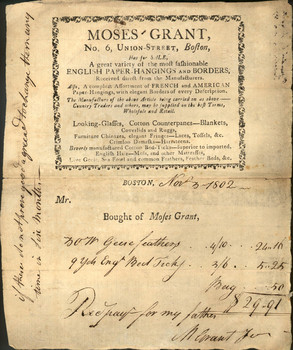 MOSES GRANT,
No. 6, UNION-STREET, Boston,
Has for SALE,
A great variety of the most fashionable
ENGLISH PAPER-HANGINGS AND BORDERS,
Received direct from the Manufacturers.
Also, A compleat Assortment of FRENCH and AMERICAN
Paper-Hangings, with elegant Borders of every Description.
The Manufacturers of the above Articles being carried on as above—
Country Traders and others, may be supplied on the best Terms,
Wholesale and Retail.
Looking-Glasses, Cotton Counterpanes—Blankets,
Coverlids and Ruggs,
Furniture Chintzes, elegant Fringe—Laces, Tassels, &c.
Crimson Damasks—Moreens.
Beverly manufactured Cotton Bed-Ticks—superior to imported.
English Hair-Matts, and other Mattresses,
Live Geese, Sea Fowl and common Feathers, Feather Beds, &c.
BOSTON, Nov. 3 1802
Mr.
Bought of Moses Grant,
30 lb Geese feathers 4/10 24.16
9 yds Engs Bed Tick 3/6 5.25
Bag 50
$ 29.91
Recd pay for my father
M Grant Jr
if these do not prove good agree to exchange them any
time in six months